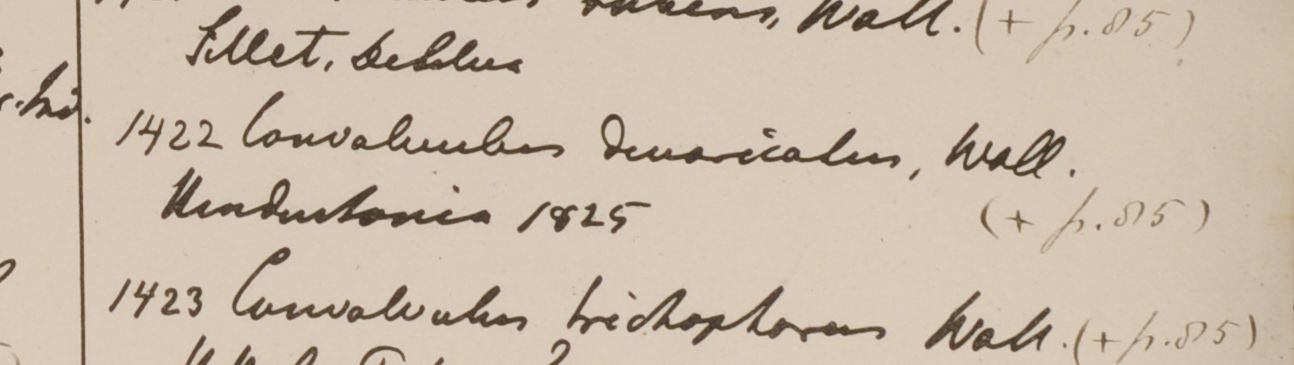 rubens, Wall. (+ p. 85)
Sillet.
r. Ind.
1422 Convolvulus divaricatus, Wall.
Hindustania 1825 (+ p. 85)
1423 Convolvulus trichophorus Wall. (+ p. 85)